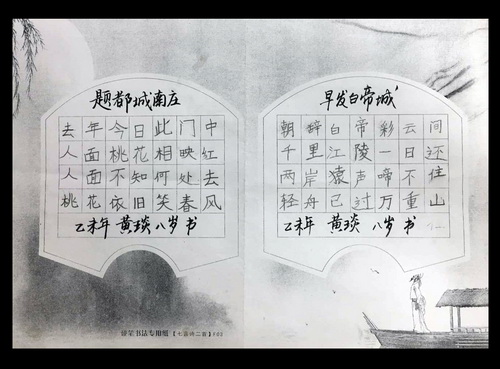 题都城南庄
去年今日此门中
人面桃花相映红
人面不知何处去
桃花依旧笑春风
乙未年 黄琰 八岁 书
早发白帝城
朝辞白帝彩云间
千里江陵一日还
两岸猿声啼不住
轻舟已过万重山
乙未年 黄琰 八岁 书
硬笔书法专用纸【七言诗二首】F02